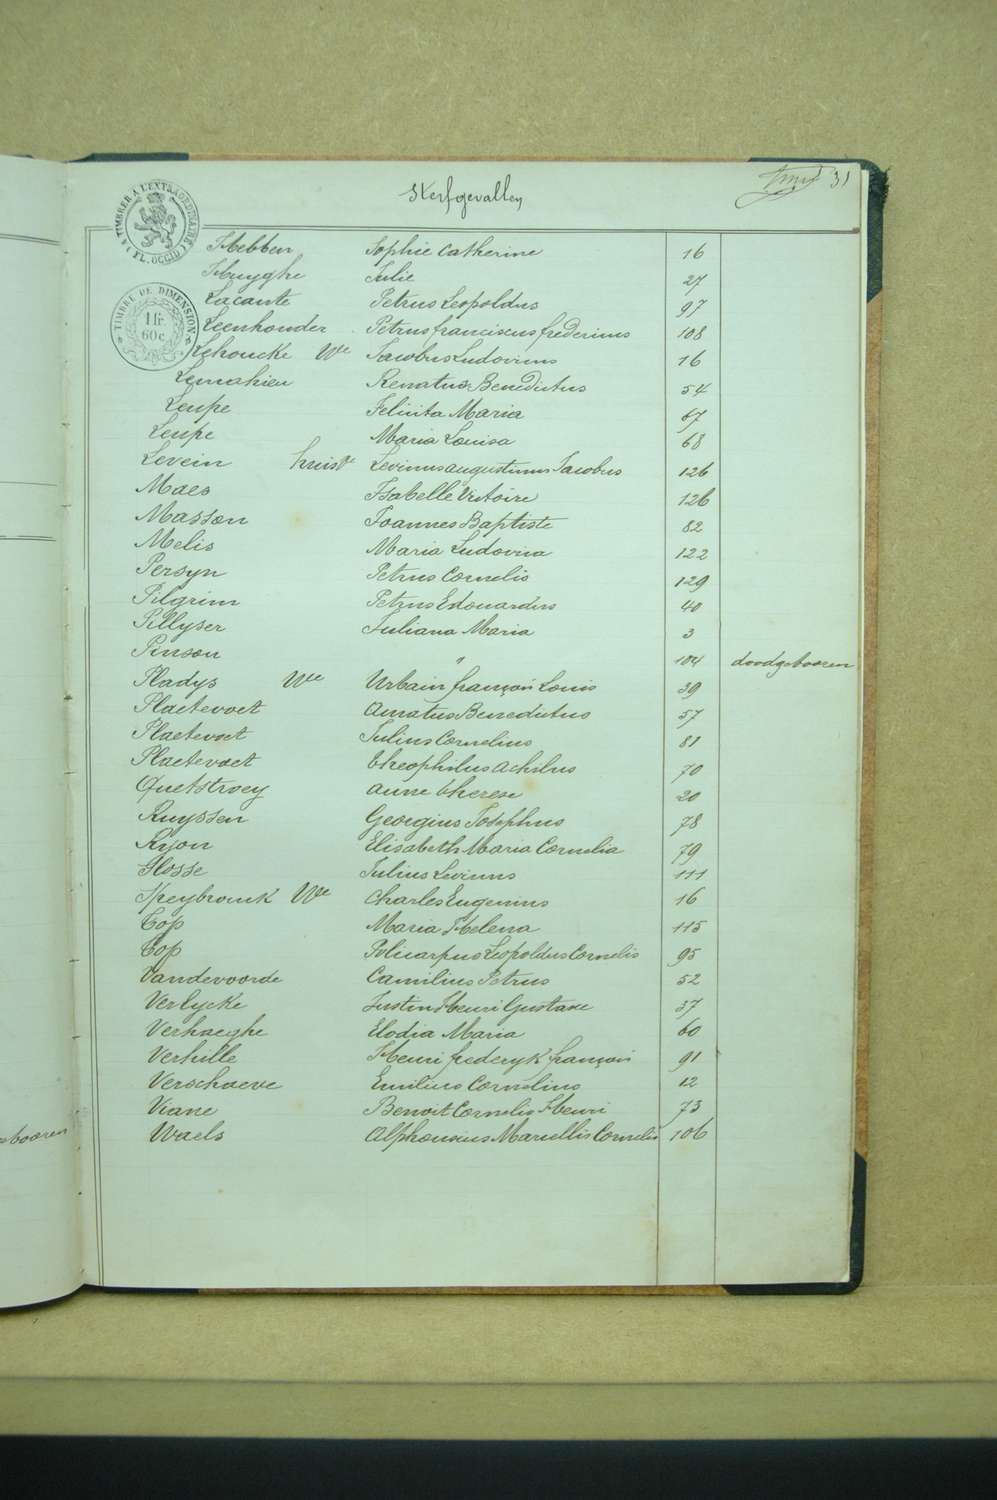 Sterfgevallen
31
TIMBRER A L'EXTRAORDINAIRE
FL. OCCID
TIMBRE DE DIMENSION
1 fr. 60 c.
Hebben Sophie Catherine 16
Huyghe Julie 27
Lacante Petrus Leopoldus 97
Leenhouder Petrus franciscus fredericus 108
Lehoucke We Jacobus Ludovicus 16
Lemahieu Renatus Benedictus 54
Leupe Felicita Maria 67
Leupe Maria Louisa 68
Levein huisve Levinus augustinus Jacobus 126
Maes Isabelle Victoire 126
Masson Joannes Baptiste 82
Melis Maria Ludovica 122
Persyn Petrus Cornelis 129
Pilgrim Petrus Edouardus 40
Pillyser Juliana Maria 3
Pinson " 104 doodgebooren
Pladys We Urbain françois Louis 39
Plaetevoet Amatus Benedictus 57
Plaetevoet Julius Cornelius 81
Plaetevoet theophilus achilus 70
Quetstroey anne therese 20
Ruyssen Georgius Josephus 78
Ryon Elisabeth Maria Cornelia 79
Slosse Julius Levinus 111
Speybrouck We Charles Eugenius 16
Top Maria Helena 115
Top Policarpus Leopoldus Cornelis 95
Vandevoorde Camilius Petrus 52
Verlycke Justin Henri Gustave 37
Verhaeghe Elodia Maria 60
Verhille Henri frederyk françois 91
Verschaeve Emilius Cornelius 12
Viane Benoit Cornelis Henri 73
Waels Alphonsius Marcellis Cornelis 106
booren